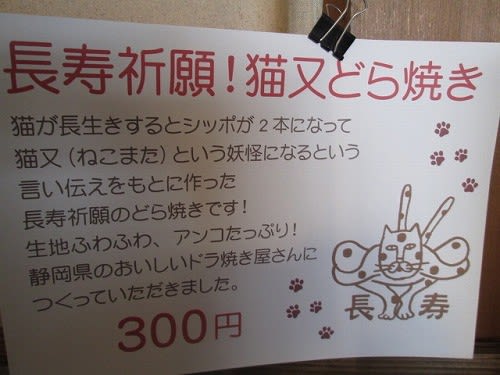 長寿祈願！猫又どら焼き
猫が長生きするとシッポが２本になって
猫又（ねこまた）という妖怪になるという
言い伝えをもとに作った
長寿祈願のどら焼きです！
生地ふわふわ、アンコたっぷり！
静岡県のおいしいドラ焼き屋さんに
つくっていただきました。
300円
長寿